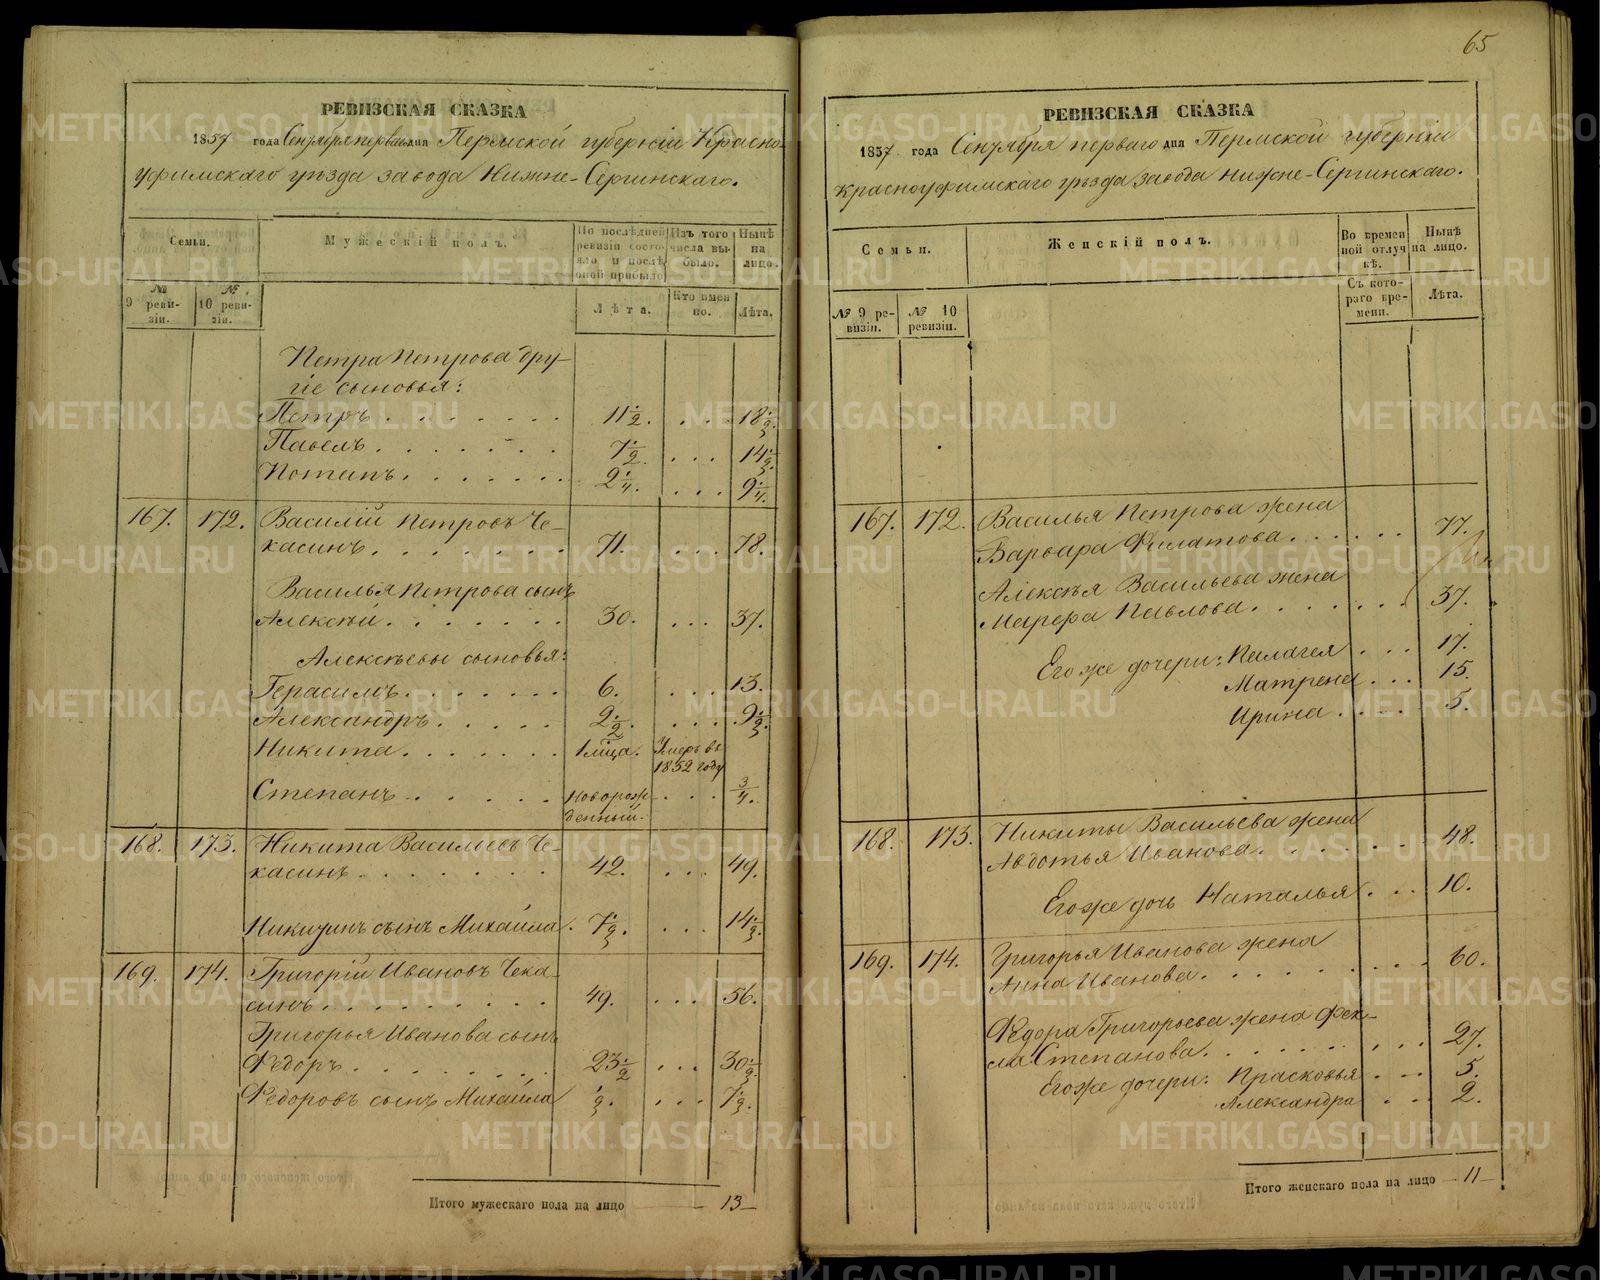 РЕВИЗСКАЯ СКАЗКА
1857 года Сентября перваго дня Пермской губерніи Красно-
уфимскаго уѣзда завода Нижне-Сергинскаго.
Семьи.
Мужескій полъ.
По послѣдней ревизіи состояло и послѣ оной прибыло
Изъ того числа выбыло.
Нынѣ на лицо.
№ 9 ревизіи.
№ 10 ревизіи.
Лѣта.
Кто имено.
Лѣта.
Петра Петрова дру-
гіе сыновья:
Петръ . . . . . . . 11 1/2. . . . 18 1/2.
Павелъ . . . . . . . 7 1/2. . . . 14 1/2.
Потапъ . . . . . . . 2 1/4. . . . 9 1/4.
167. 172. Василій Петровъ Че-
касинъ . . . . . . . 71. . . . 78.
Василья Петрова сынъ
Алексѣй . . . . . . . 30. . . . 37.
Алексѣевы сыновья:
Герасимъ . . . . . . . 6. . . . 13.
Александръ . . . . . 2 1/2. . . . 9 1/2.
Никита . . . . . . 1 мѣца. Умеръ въ
1852 году
Степанъ . . . . . Новорож- . . . 3/4.
денный.
168. 173. Никита Васильевъ Че-
касинъ . . . . . . . 42. . . . 49.
Никитинъ сынъ Михайла . 7 1/2. . . . 14 1/2.
169. 174. Григорій Ивановъ Чека-
синъ . . . . . . . 49. . . . 56.
Григорья Иванова сынъ
Ѳедоръ . . . . . . . 23 1/2 . . . 30 1/2.
Ѳедоровъ сынъ Михайла 1/2. . . . 7 1/2.
Итого мужескаго пола на лицо — 13 —
65
РЕВИЗСКАЯ СКАЗКА
1857 года Сентября перваго дня Пермской губерніи
Красноуфимскаго уѣзда завода Нижне-Сергинскаго.
Семьи.
Женскій полъ.
Во временной отлучкѣ.
Нынѣ на лицо.
№ 9 ревизіи.
№ 10 ревизіи.
Съ котораго времени.
Лѣта.
167. 172. Василья Петрова жена
Варвара Филатова . . . . . . 77.
Алексѣя Васильева жена
Марѳра Павлова . . . . . . . 37.
Его же дочери: Пелагея . . . 17.
Матрена . . . 15.
Ирина . . . . 5.
168. 173. Никиты Васильева жена
Авдотья Иванова . . . . . . . 48.
Его же дочь Наталья . . . 10.
169. 174. Григорья Иванова жена
Анна Иванова . . . . . . . . . 60.
Ѳедора Григорьева жена Ѳек-
ла Степанова . . . . . . . . . 27.
Его же дочери: Прасковья . . . 5.
Александра . . . 2.
Итого женскаго пола на лицо — 11 —
METRIKI.GASO-URAL.RU